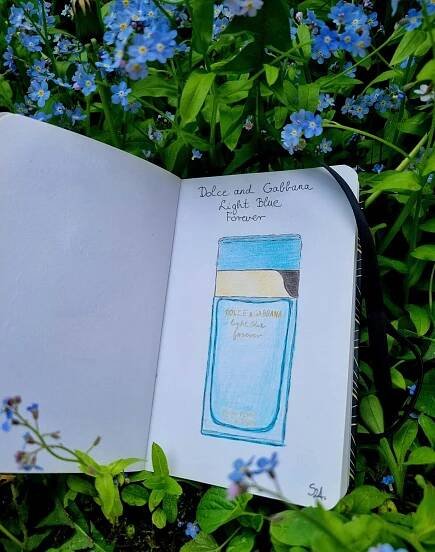 Dolce and Gabbana
Light Blue
Forever
DOLCE & GABBANA
light blue
forever